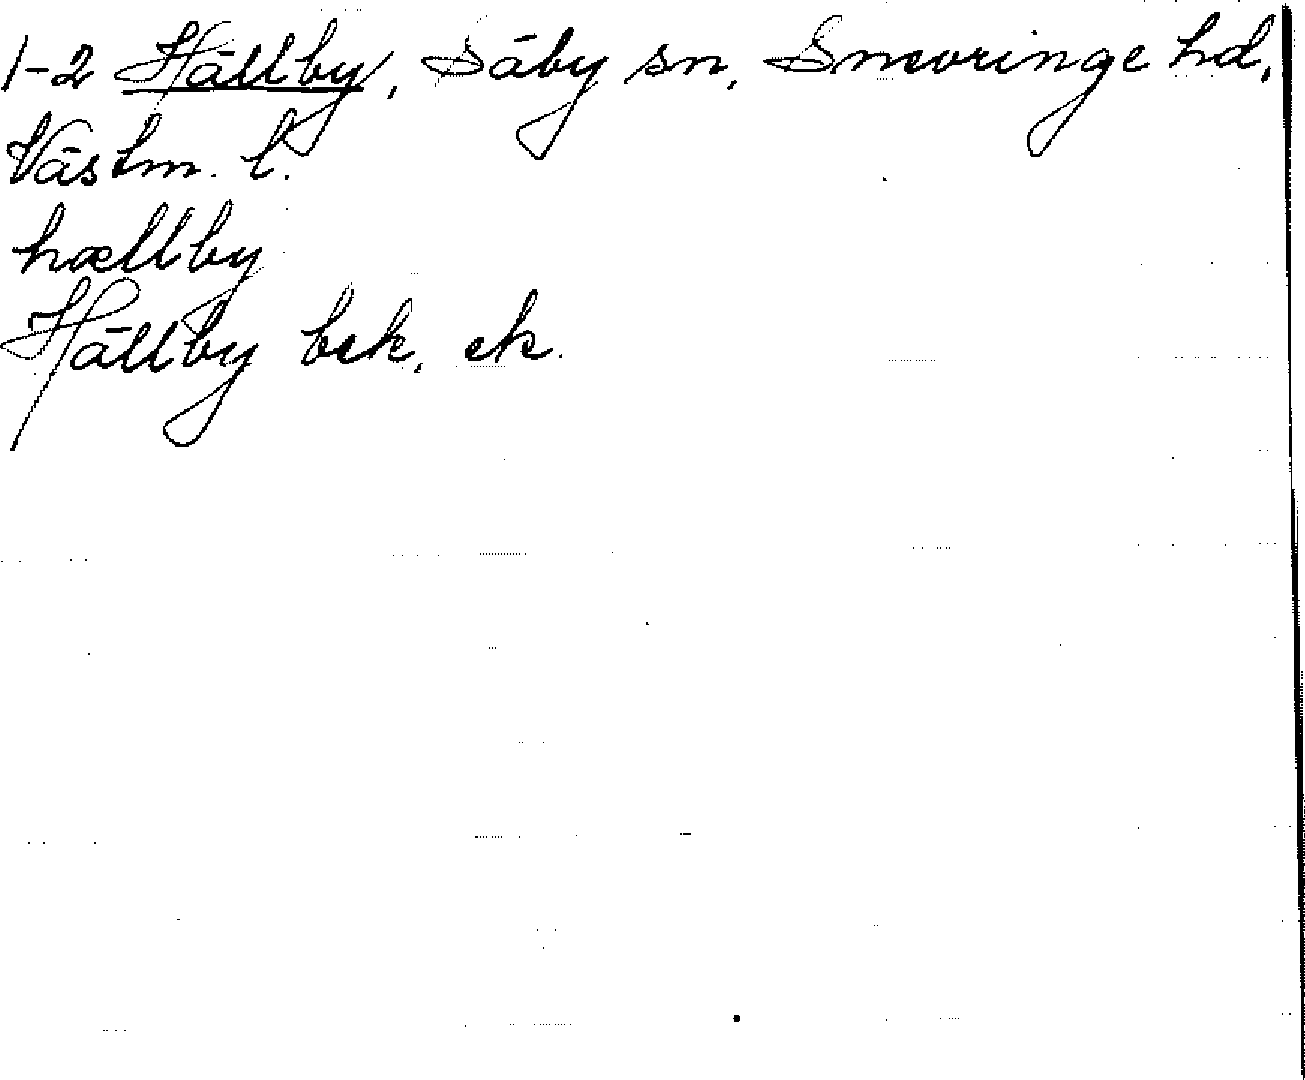 1-2 Hällby, Säby sn, Snevringe hd,
Västm. l.
hællby
Hällby bek, ek.